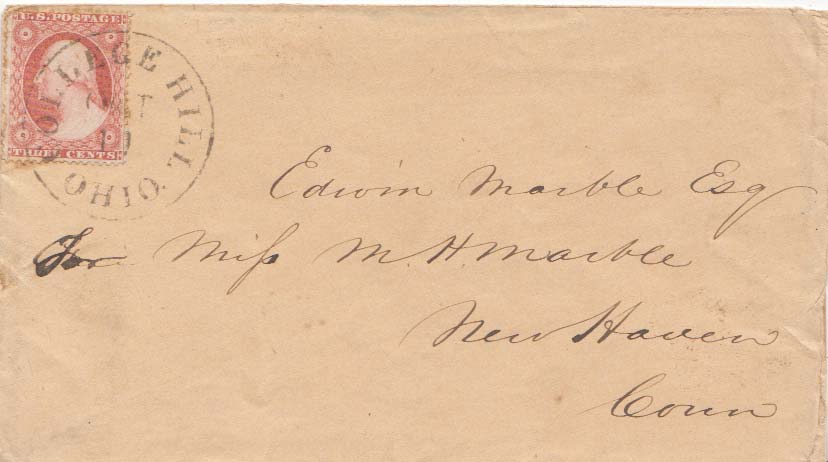 U.S. POSTAGE
THREE CENTS
COLLEGE HILL OHIO
OCT
19
Edwin Marble Esq
For Miss M. H. Marble
New Haven
Conn